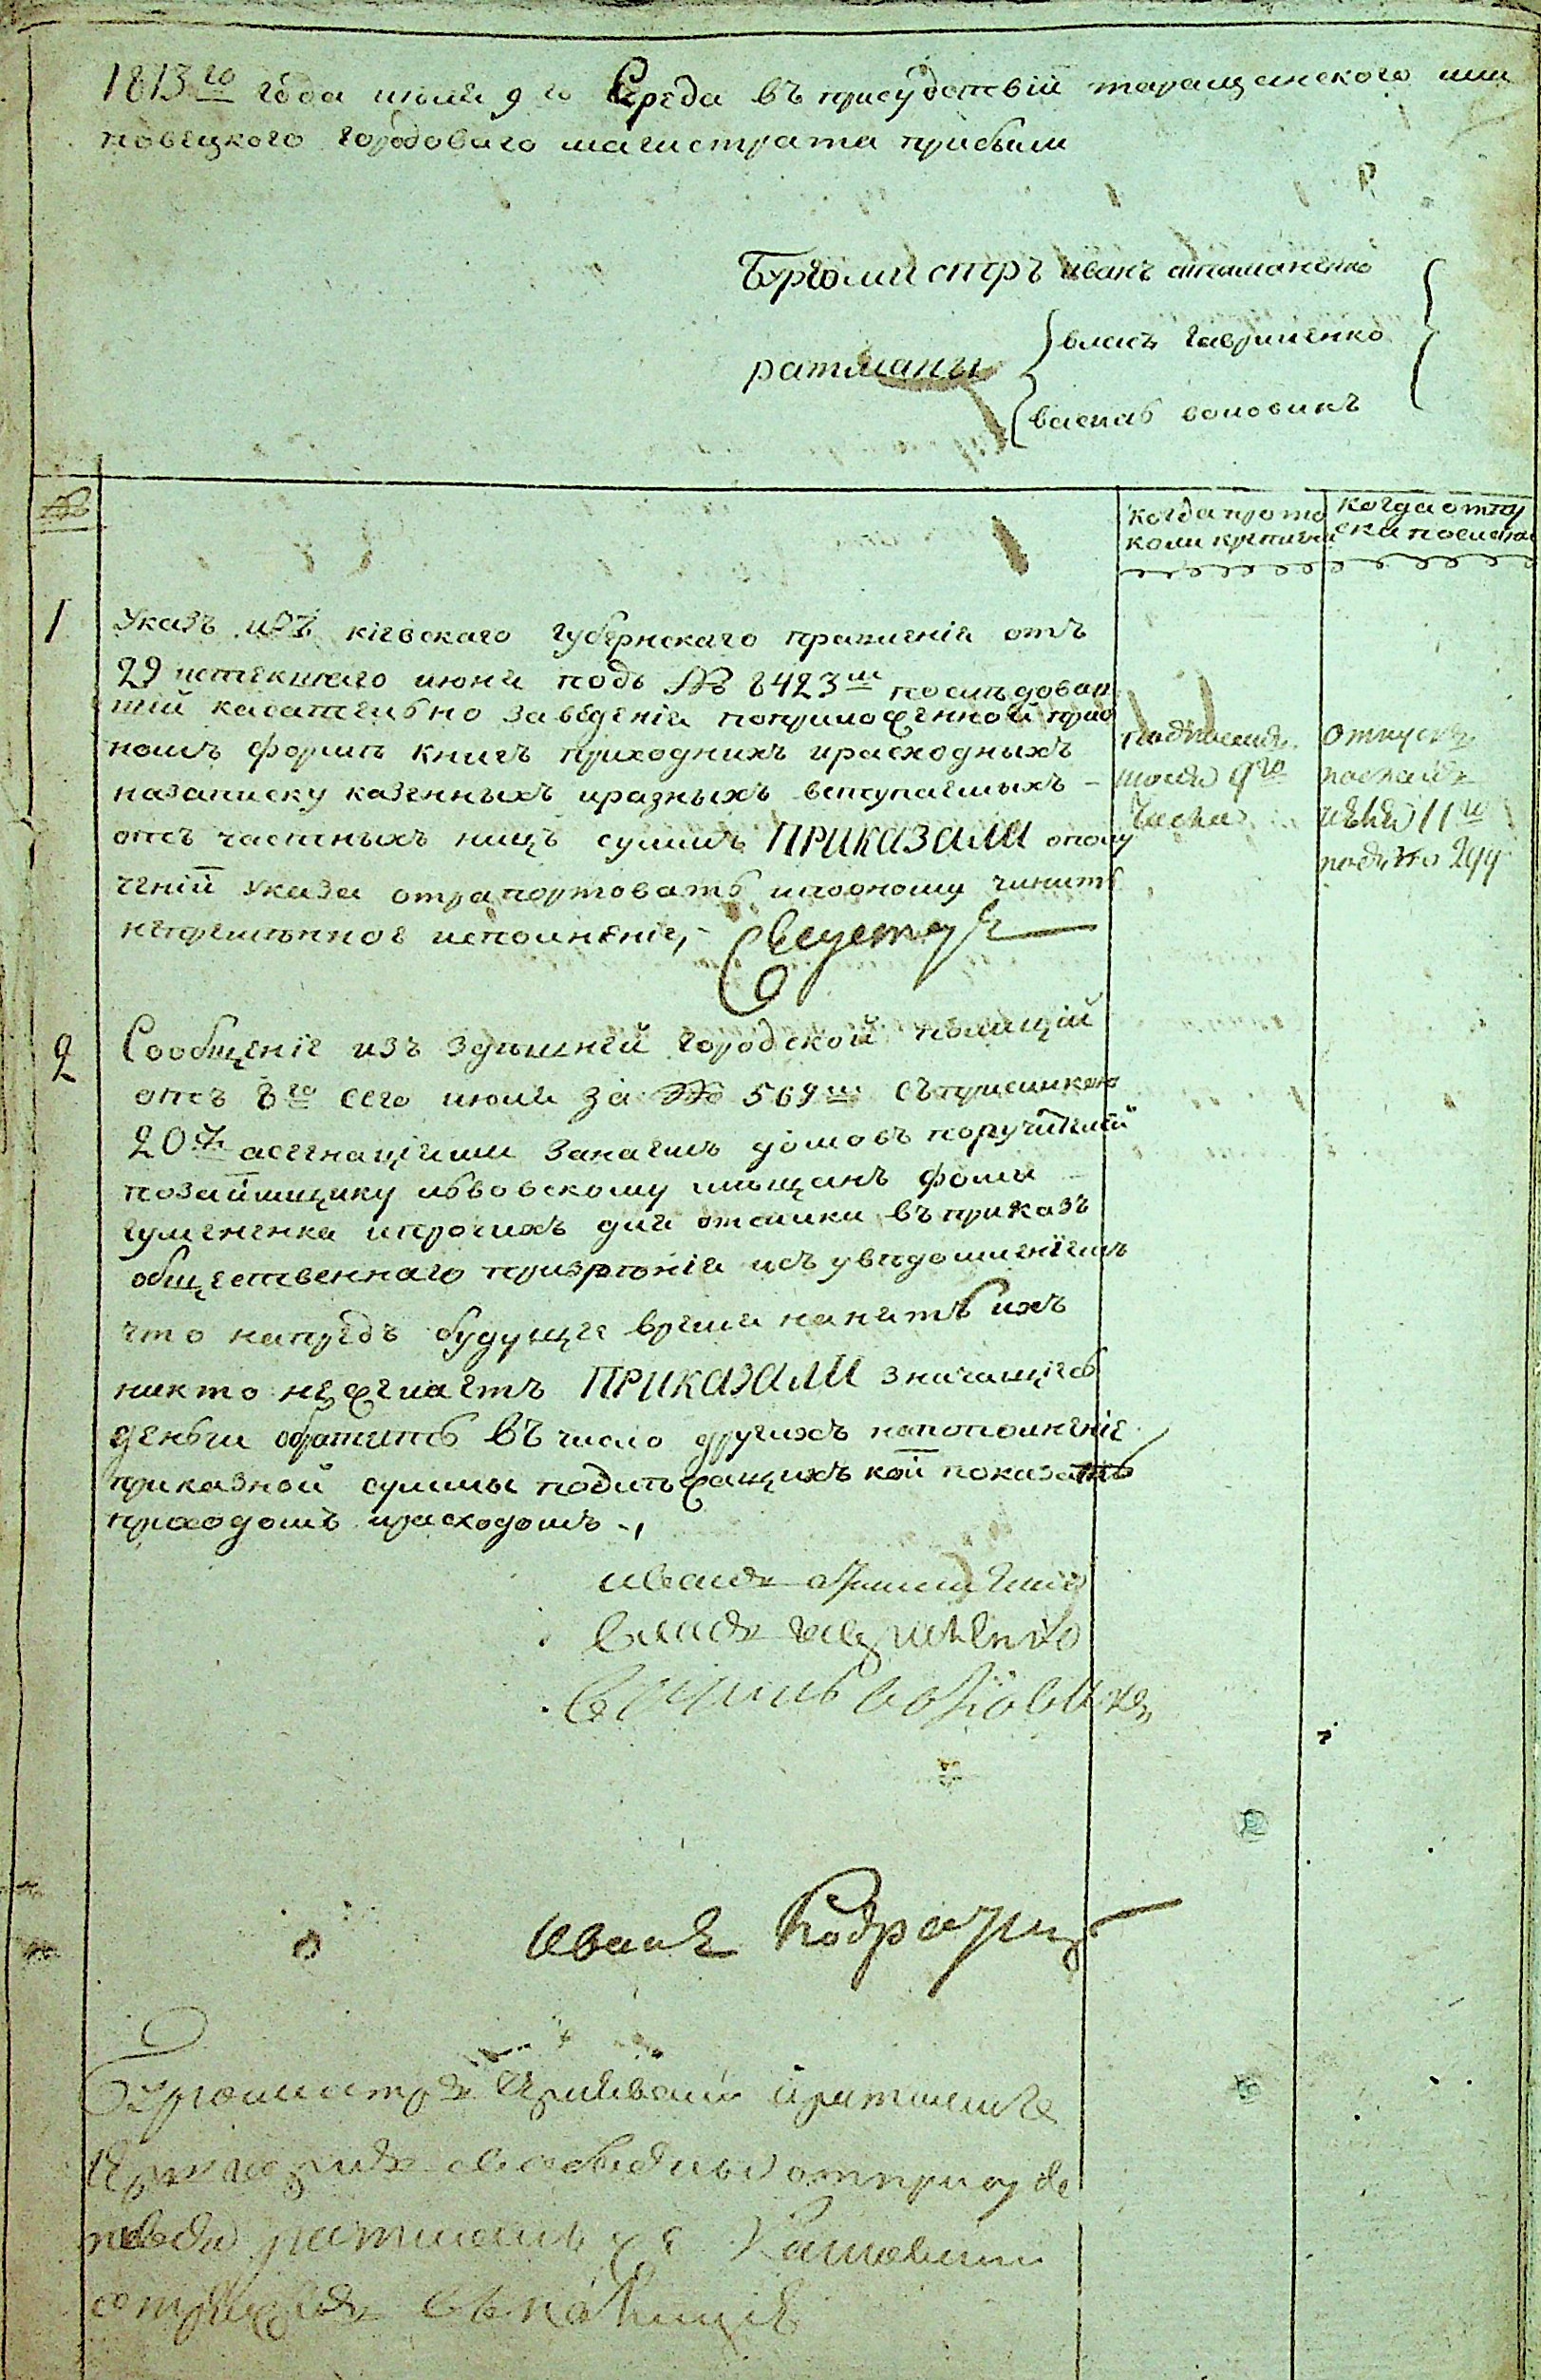 1813го года июля 9го Середа въ присудствіи таращанского или
повецкого городоваго магистрата прибыли
Бургомистръ иванъ атаманенко
ратманы
власъ гавриленко
василь воловикъ
№
когда прото
коли крепл
когда отпу
ски посланы
1
Указъ изъ кіевскаго губернскаго правленія отъ
29 истекшаго июня подъ № 8423м последовав
шій касательно заведенія поприложенной при
номъ форме книгъ приходнихъ ирасходныхъ
назаписку казенныхъ иразныхъ вступаемыхъ -
отъ частныхъ лицъ суммъ ПРИКАЗАЛИ ополу
ченіи указа отрапортовать ипооному чинить
непременное исполненіе,-
подписанъ
июля 9го
числа
отпускъ
посланъ
июля 11го
подъ № 299
2
Сообщеніе изъ здешней городской полиціи
отъ 8го сего июля за № 569м съприсилкою
20 р асегнаціями занаемъ домовъ поручителей
позаймщику львовскому мещанъ фомы
гумененка ипрочихъ для отсилки въ приказъ
общественнаго призренія исъ уведомленіемъ
что напредъ будуще время нанять ихъ
никто нежелаетъ ПРИКАЗАЛИ значащіесь
деньги обратить въ число другихъ напополненіе
приказной суммы подлежащихъ кои показать
приходомъ ирасходомъ -,
иванъ атаманенко
власъ гавриленко
василь воловикъ
иванъ
Бургомистръ
ратманъ